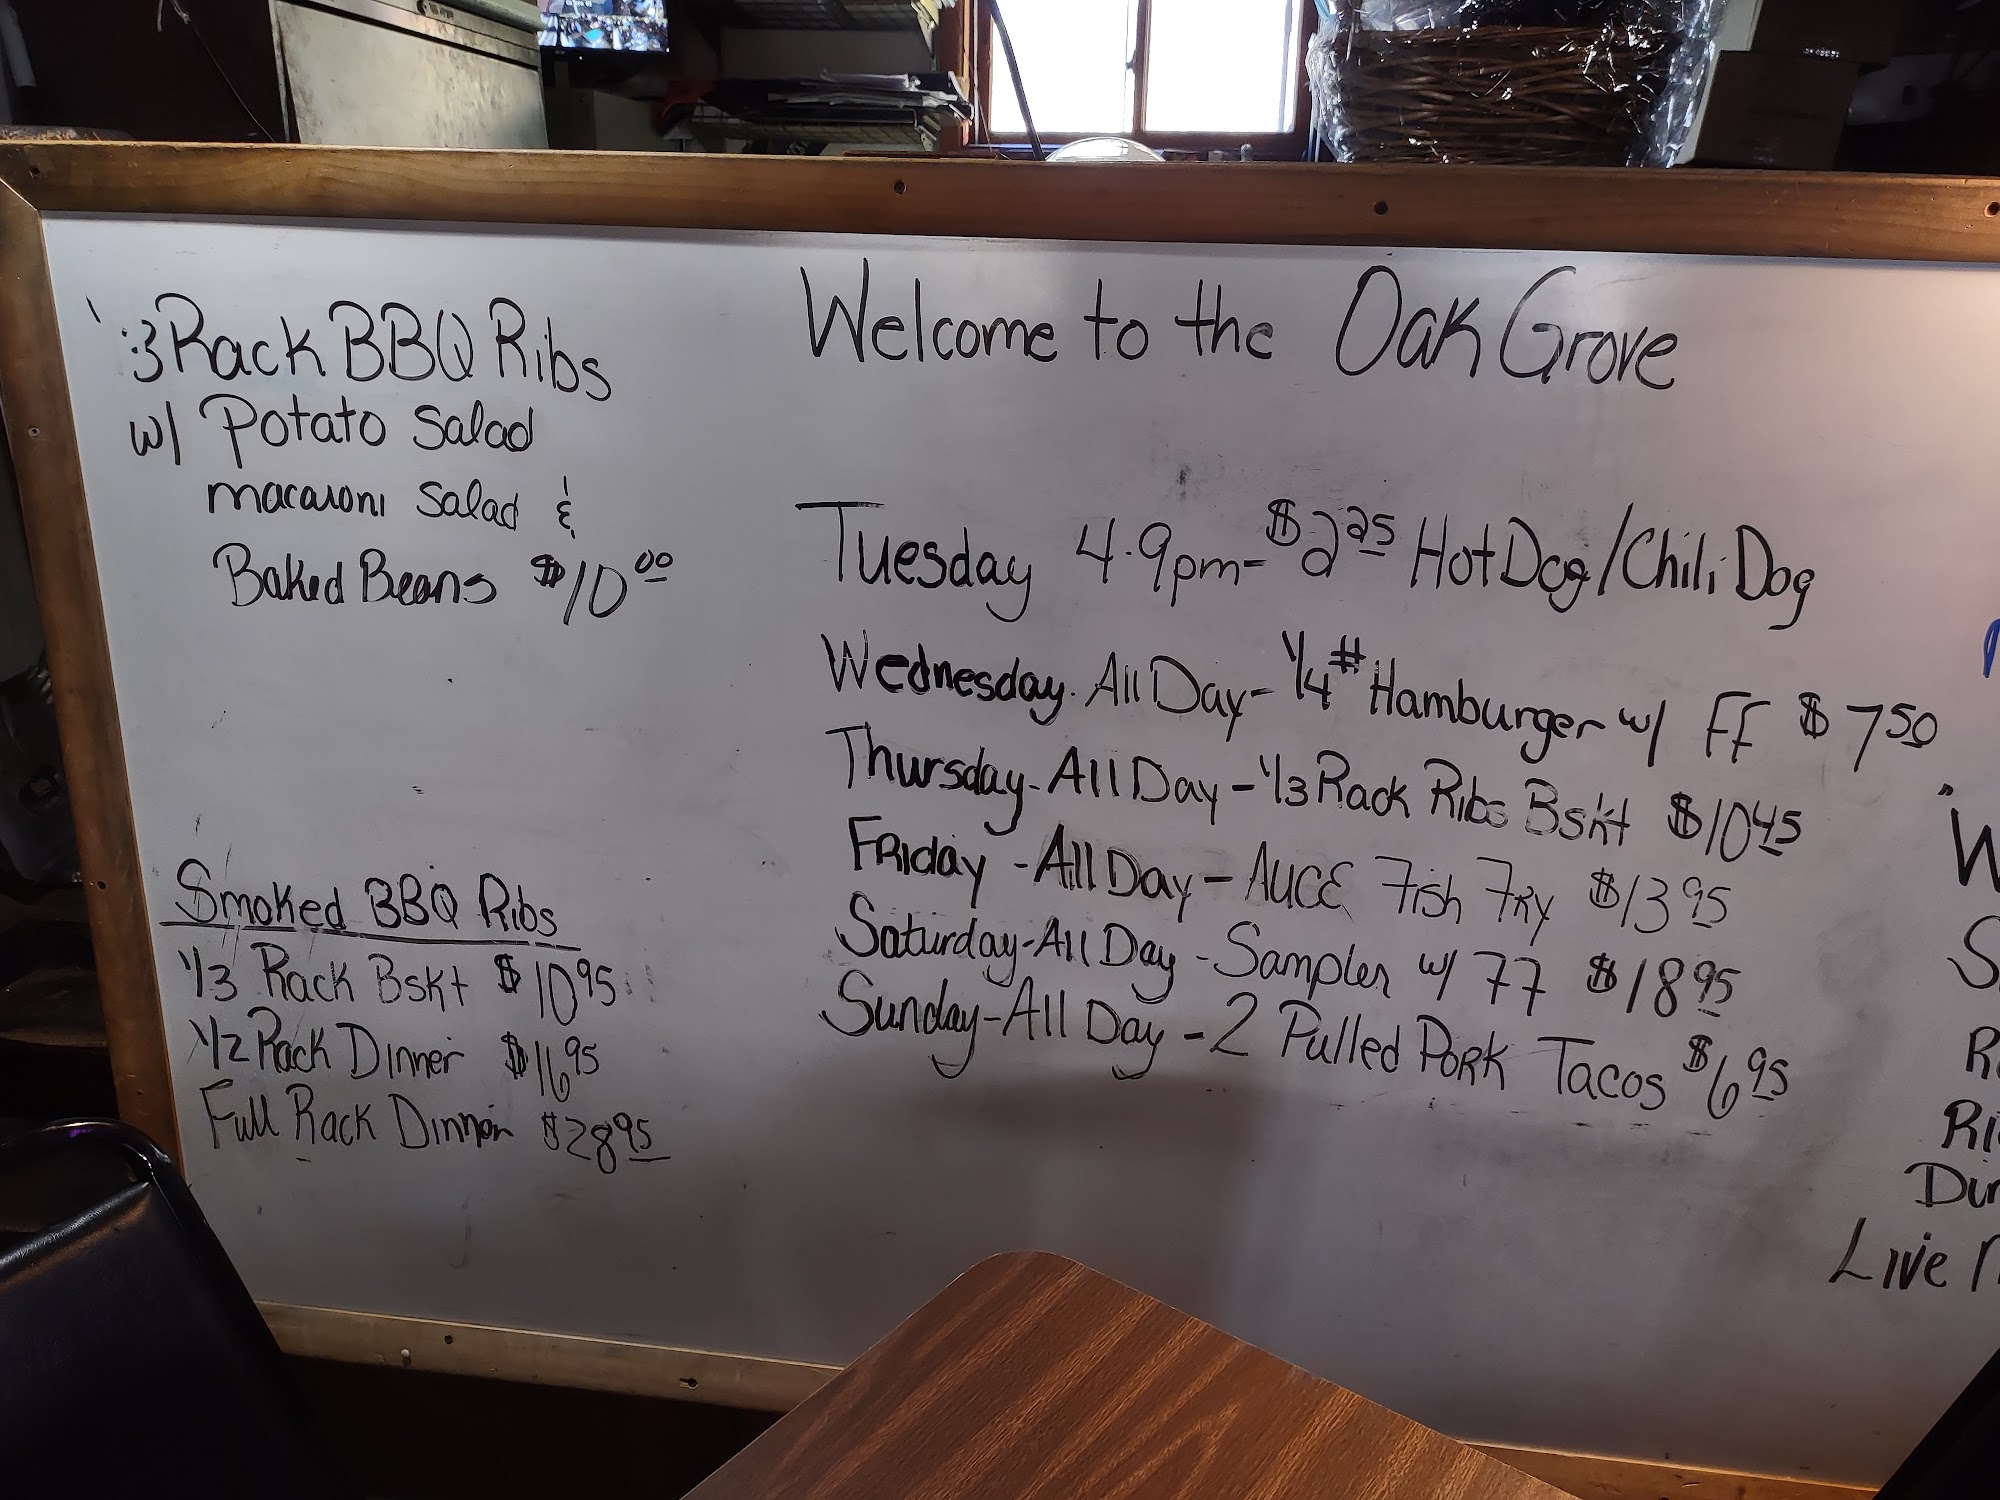 1/3 Rack BBQ Ribs
w/ Potato Salad
macaroni Salad &
Baked Beans $10.00
Smoked BBQ Ribs
1/3 Rack Bskt $10.95
1/2 Rack Dinner $16.95
Full Rack Dinner $28.95
Welcome to the Oak Grove
Tuesday 4-9pm- $2.25 Hot Dog/Chili Dog
Wednesday. All Day- 1/4# Hamburger w/ FF $7.50
Thursday-All Day-1/3 Rack Ribs Bskt $10.45
Friday -All Day- AUCE Fish Fry $13.95
Saturday-All Day -Sampler w/ FF $18.95
Sunday-All Day -2 Pulled Pork Tacos $6.95
Live